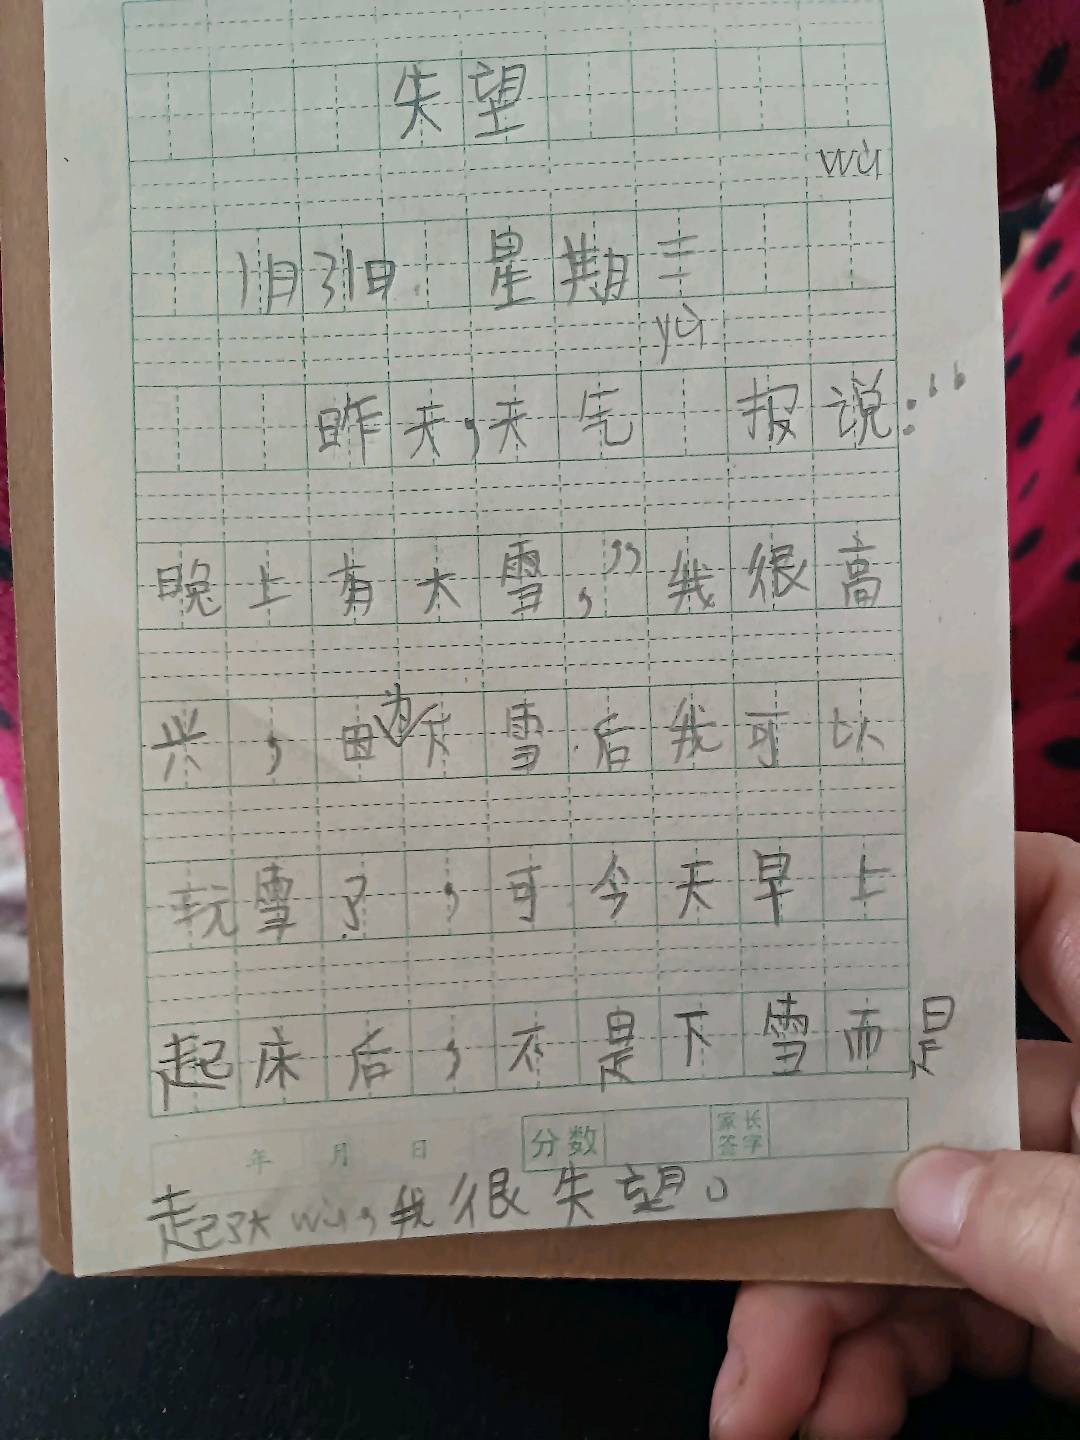 失望
wù
1月31日 星期三
yù
昨天,天气 报说:“
晚上有大雪,”我很高
兴,因为下雪后我可以
玩雪了,可今天早上
起床后,不是下雪而是
年 月 日 分数 家长签字
起了大wù,我很失望。